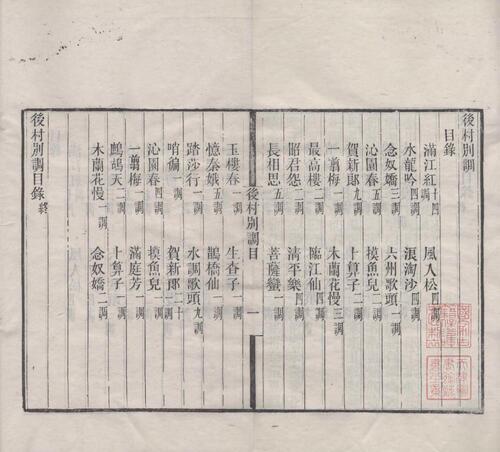 後村別調
目錄
滿江紅十四調 風入松四調
水龍吟四調 浪淘沙五調
念奴嬌三調 六州歌頭一調
沁園春五調 摸魚兒二調
賀新郎九調 卜算子二調
一翦梅一調 木蘭花慢三調
最高樓二調 臨江仙四調
昭君怨三調 清平樂四調
長相思五調 菩薩蠻一調
後村別調目 一
玉樓春一調 生查子一調
憶秦娥五調 鵲橋仙一調
踏莎行一調 水調歌頭九調
哨徧一調 賀新郎二十調
沁園春四調 摸魚兒一調
一翦梅一調 滿庭芳一調
鷓鴣天二調 卜算子二調
木蘭花慢一調 念奴嬌二調
後村別調目錄終